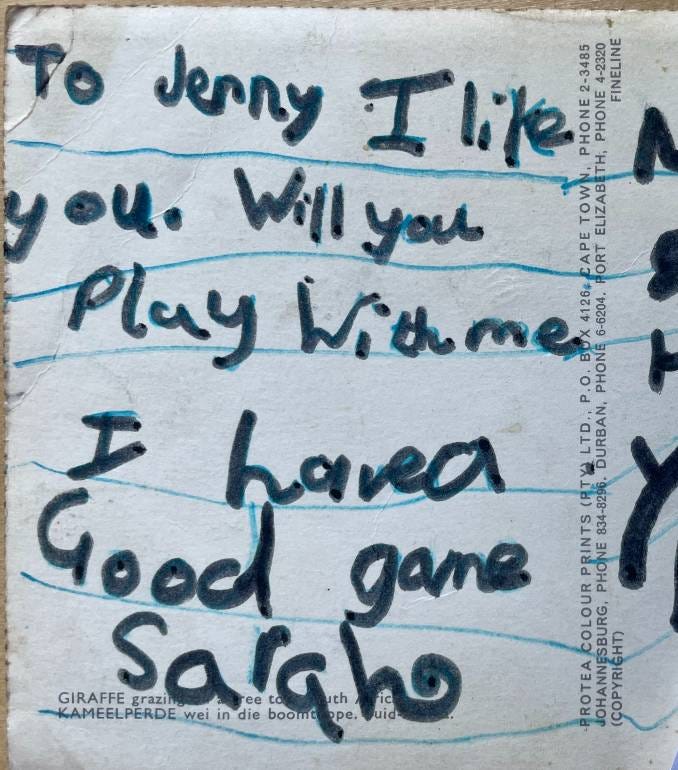 To Jenny I like
you. Will you
Play With me
I haved
Good game
Sarah
GIRAFFE grazing tree South
KAMEELPERDE wei in die boomtoppe. Suid-
PROTEA COLOUR PRINTS (PTY) LTD., P.O. BOX 4126, CAPE TOWN, PHONE 2-3485
JOHANNESBURG, PHONE 834-8296, DURBAN, PHONE 6-6204, PORT ELIZABETH, PHONE 4-2320
(COPYRIGHT) FINELINE